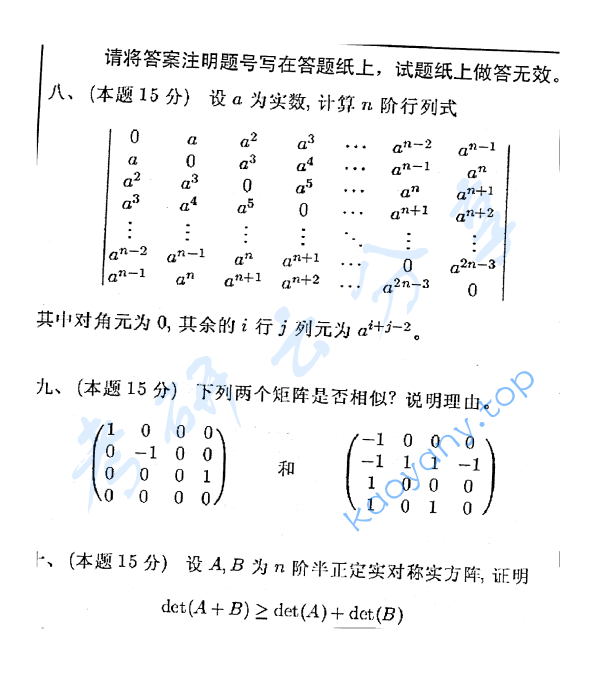 请将答案注明题号写在答题纸上，试题纸上做答无效。
八、(本题 15 分) 设 a 为实数, 计算 n 阶行列式
0 a a² a³ ⋯ aⁿ⁻² aⁿ⁻¹
a 0 a³ a⁴ ⋯ aⁿ⁻¹ aⁿ
a² a³ 0 a⁵ ⋯ aⁿ aⁿ⁺¹
a³ a⁴ a⁵ 0 ⋯ aⁿ⁺¹ aⁿ⁺²
⋮ ⋮ ⋮ ⋮ ⋱ ⋮ ⋮
aⁿ⁻² aⁿ⁻¹ aⁿ aⁿ⁺¹ ⋯ 0 a²ⁿ⁻³
aⁿ⁻¹ aⁿ aⁿ⁺¹ aⁿ⁺² ⋯ a²ⁿ⁻³ 0
其中对角元为 0, 其余的 i 行 j 列元为 aⁱ⁺ʲ⁻²。
九、(本题 15 分) 下列两个矩阵是否相似? 说明理由。
1 0 0 0
0 -1 0 0
0 0 0 1
0 0 0 0
和
-1 0 0 0
-1 1 1 -1
1 0 0 0
1 0 1 0
十、(本题 15 分) 设 A, B 为 n 阶半正定实对称实方阵, 证明
det(A + B) ≥ det(A) + det(B)
考研云分享
kaoyany.top